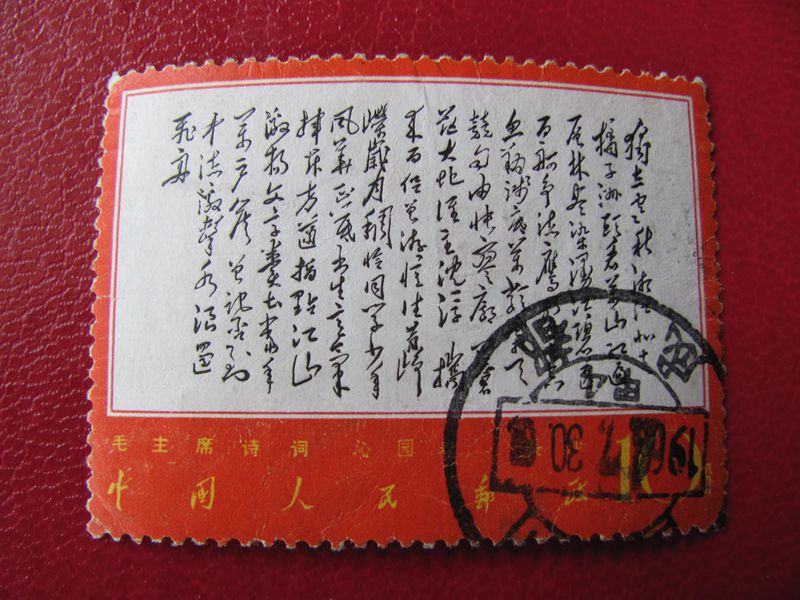 獨立寒秋湘江北去
橘子洲頭看萬山红遍
层林尽染漫江碧透
百舸争流鷹击长空
魚翔浅底萬類霜天
競自由怅寥廓问蒼
茫大地谁主沉浮携
来百侣曾游忆往昔峥
嶸歲月稠恰同学少年
风華正茂书生意氣
挥斥方遒指點江山
激扬文字糞土當年
萬户侯曾记否到
中流激擊水浪遏
飛舟
毛主席诗词 沁园春
中国人民郵政 10
30